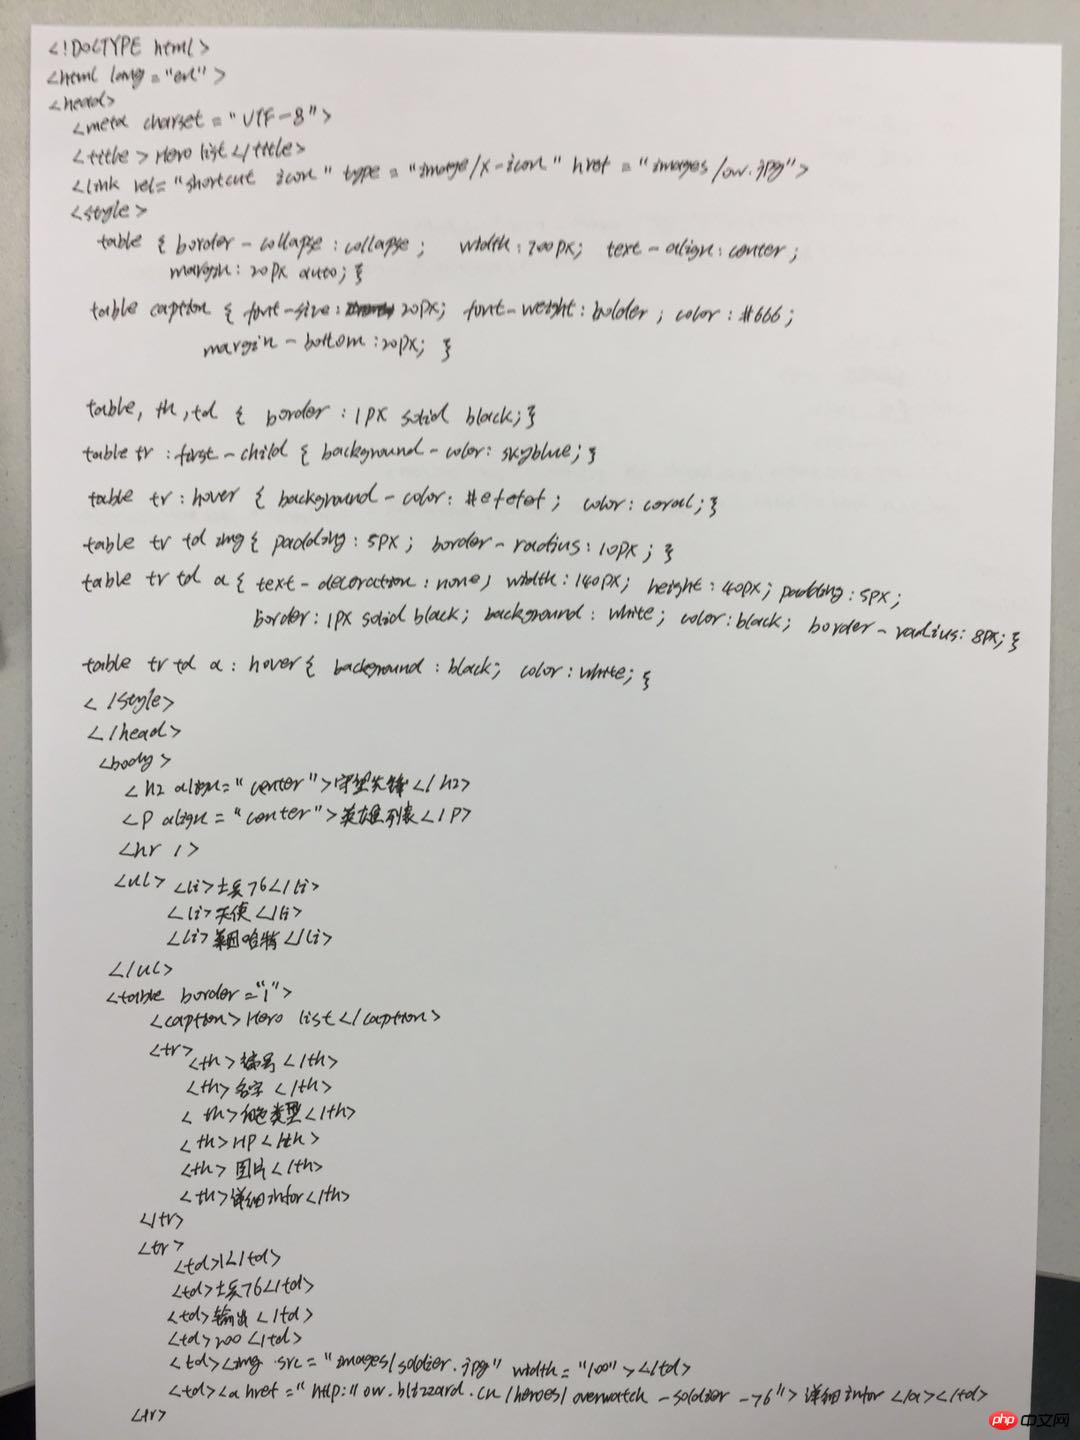 <!DOCTYPE html>
<html lang="en">
<head>
<meta charset="UTF-8">
<title>Hero list</title>
<link rel="shortcut icon" type="image/x-icon" href="images/ow.jpg">
<style>
table { border-collapse: collapse; width: 700px; text-align: center;
margin: 20px auto; }
table caption { font-size: 20px; font-weight: bolder; color: #666;
margin-bottom: 20px; }
table, th, td { border: 1px solid black; }
table tr:first-child { background-color: skyblue; }
table tr:hover { background-color: #efefef; color: coral; }
table tr td img { padding: 5px; border-radius: 10px; }
table tr td a { text-decoration: none; width: 140px; height: 40px; padding: 5px;
border: 1px solid black; background: white; color: black; border-radius: 8px; }
table tr td a:hover { background: black; color: white; }
</style>
</head>
<body>
<h2 align="center">守望先锋</h2>
<p align="center">英雄列表</p>
<hr />
<ul> <li>士兵76</li>
<li>天使</li>
<li>莱因哈特</li>
</ul>
<table border="1">
<caption>Hero list</caption>
<tr>
<th>编号</th>
<th>名字</th>
<th>角色类型</th>
<th>HP</th>
<th>图片</th>
<th>详细infor</th>
</tr>
<tr>
<td>1</td>
<td>士兵76</td>
<td>输出</td>
<td>200</td>
<td><img src="images/soldier.jpg" width="100"></td>
<td><a href="http://ow.blizzard.cn/heroes/overwatch-soldier-76">详细infor</a></td>
</tr>
php 中文网